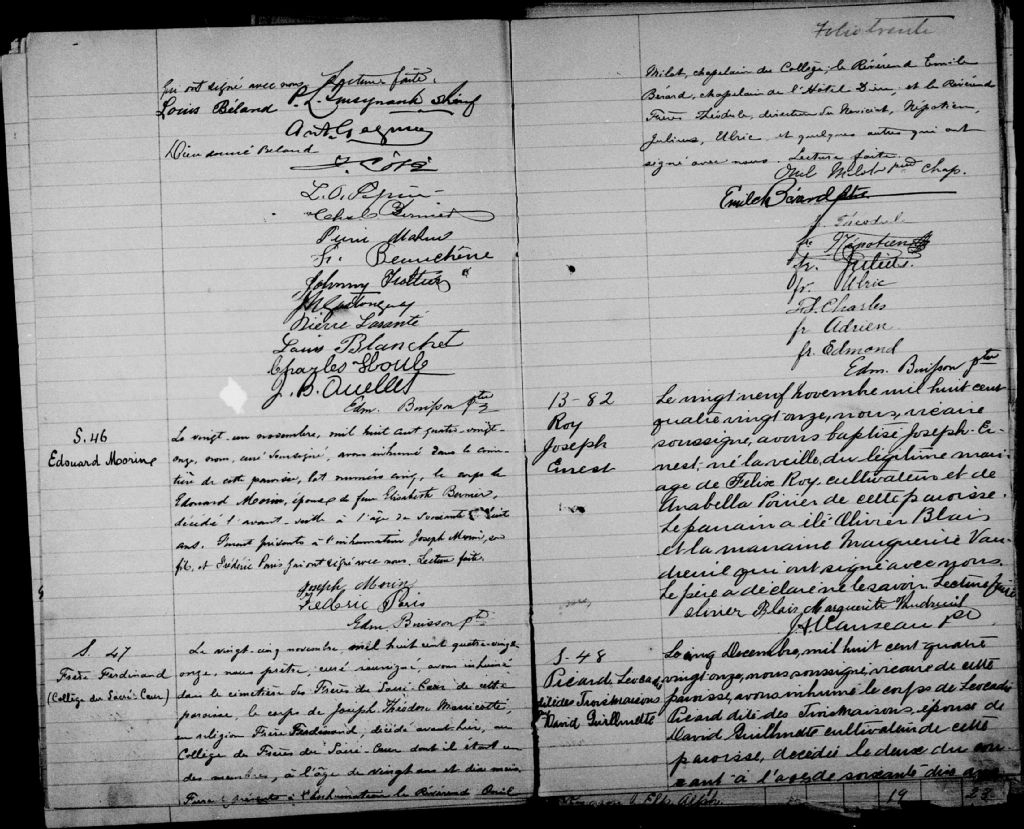 qui ont signé avec nous. Lecture faite.
Louis Béland
Dieudonné Beland
J. Côté
L. O. Pepin
Pierre
F. Beauchêne
Johnny Trottier
Pierre
Louis Blanchet
Charles Houle
J. B. Ouellet
Edm. Buisson Ptre
S. 46
Edouard Morin
Le vingt-un novembre, mil huit cent quatre-vingt-
onze, nous, curé soussigné, avons inhumé dans le cime-
tière de cette paroisse, lot numéro cinq, le corps de
Edouard Morin, époux de feue Elisabeth Bernier,
décédé l'avant-veille à l'âge de soixante huit
ans. Furent présents à l'inhumation Joseph Morin, son
fils, et Frédéric Paris qui ont signé avec nous. Lecture faite.
Joseph Morin
Frederic Paris
Edm. Buisson Ptre
S. 47
Frère Ferdinand
(Collège du Sacré-Cœur)
Le vingt-cinq novembre, mil huit cent quatre-vingt-
onze, nous prêtre, curé soussigné, avons inhumé
dans le cimetière des Frères du Sacré-Cœur de cette
paroisse, le corps de Joseph Théodore
en religion Frère Ferdinand, décédé avant-hier, au
Collège des Frères du Sacré-Cœur dont il était un
des membres, à l'âge de vingt ans et dix mois.
Furent présents à l'inhumation le Révérend Onil
Folio trente
Milot, chapelain du Collège, le Révérend Emile
Bérard, chapelain de l'Hôtel Dieu, et le Révérend
Frères Théodule, directeur du Noviciat, Népotien,
Julius, Ulric et quelques autres qui ont
signé avec nous. Lecture faite.
Onil Milot ptre chap.
Emile Bérard Ptre
f. Théodule
fr. Népotien
fr. Julius
fr. Ulric
Charles
fr Adrien
fr. Edmond
Edm. Buisson Ptre
B-82
Roy
Joseph
Ernest
Le vingt neuf novembre mil huit cent
quatre vingt onze, nous, vicaire
soussigné, avons baptisé Joseph-Er-
nest, né la veille, du légitime mari-
age de Félix Roy cultivateur et de
Anabella Poirier de cette paroisse.
Le parrain a été Olivier Blais
et la marraine Marguerite Vau-
dreuil qui ont signé avec nous.
Le père a déclaré ne le savoir. Lecture faite
Olivier Blais Marguerite Vaudreuil
S-48
Picard Leocadie
dit des Trois maisons
David Guillmette
Le cinq Decembre, mil huit cent quatre
vingt onze, nous soussigné, vicaire de cette
paroisse, avons inhumé le corps de Leocadie
Picard dité des Trois Maisons, épouse de
David Guillmette cultivateur de cette
paroisse, décédée le deux du cou-
rant à l'age de soixante dix ans
19 22